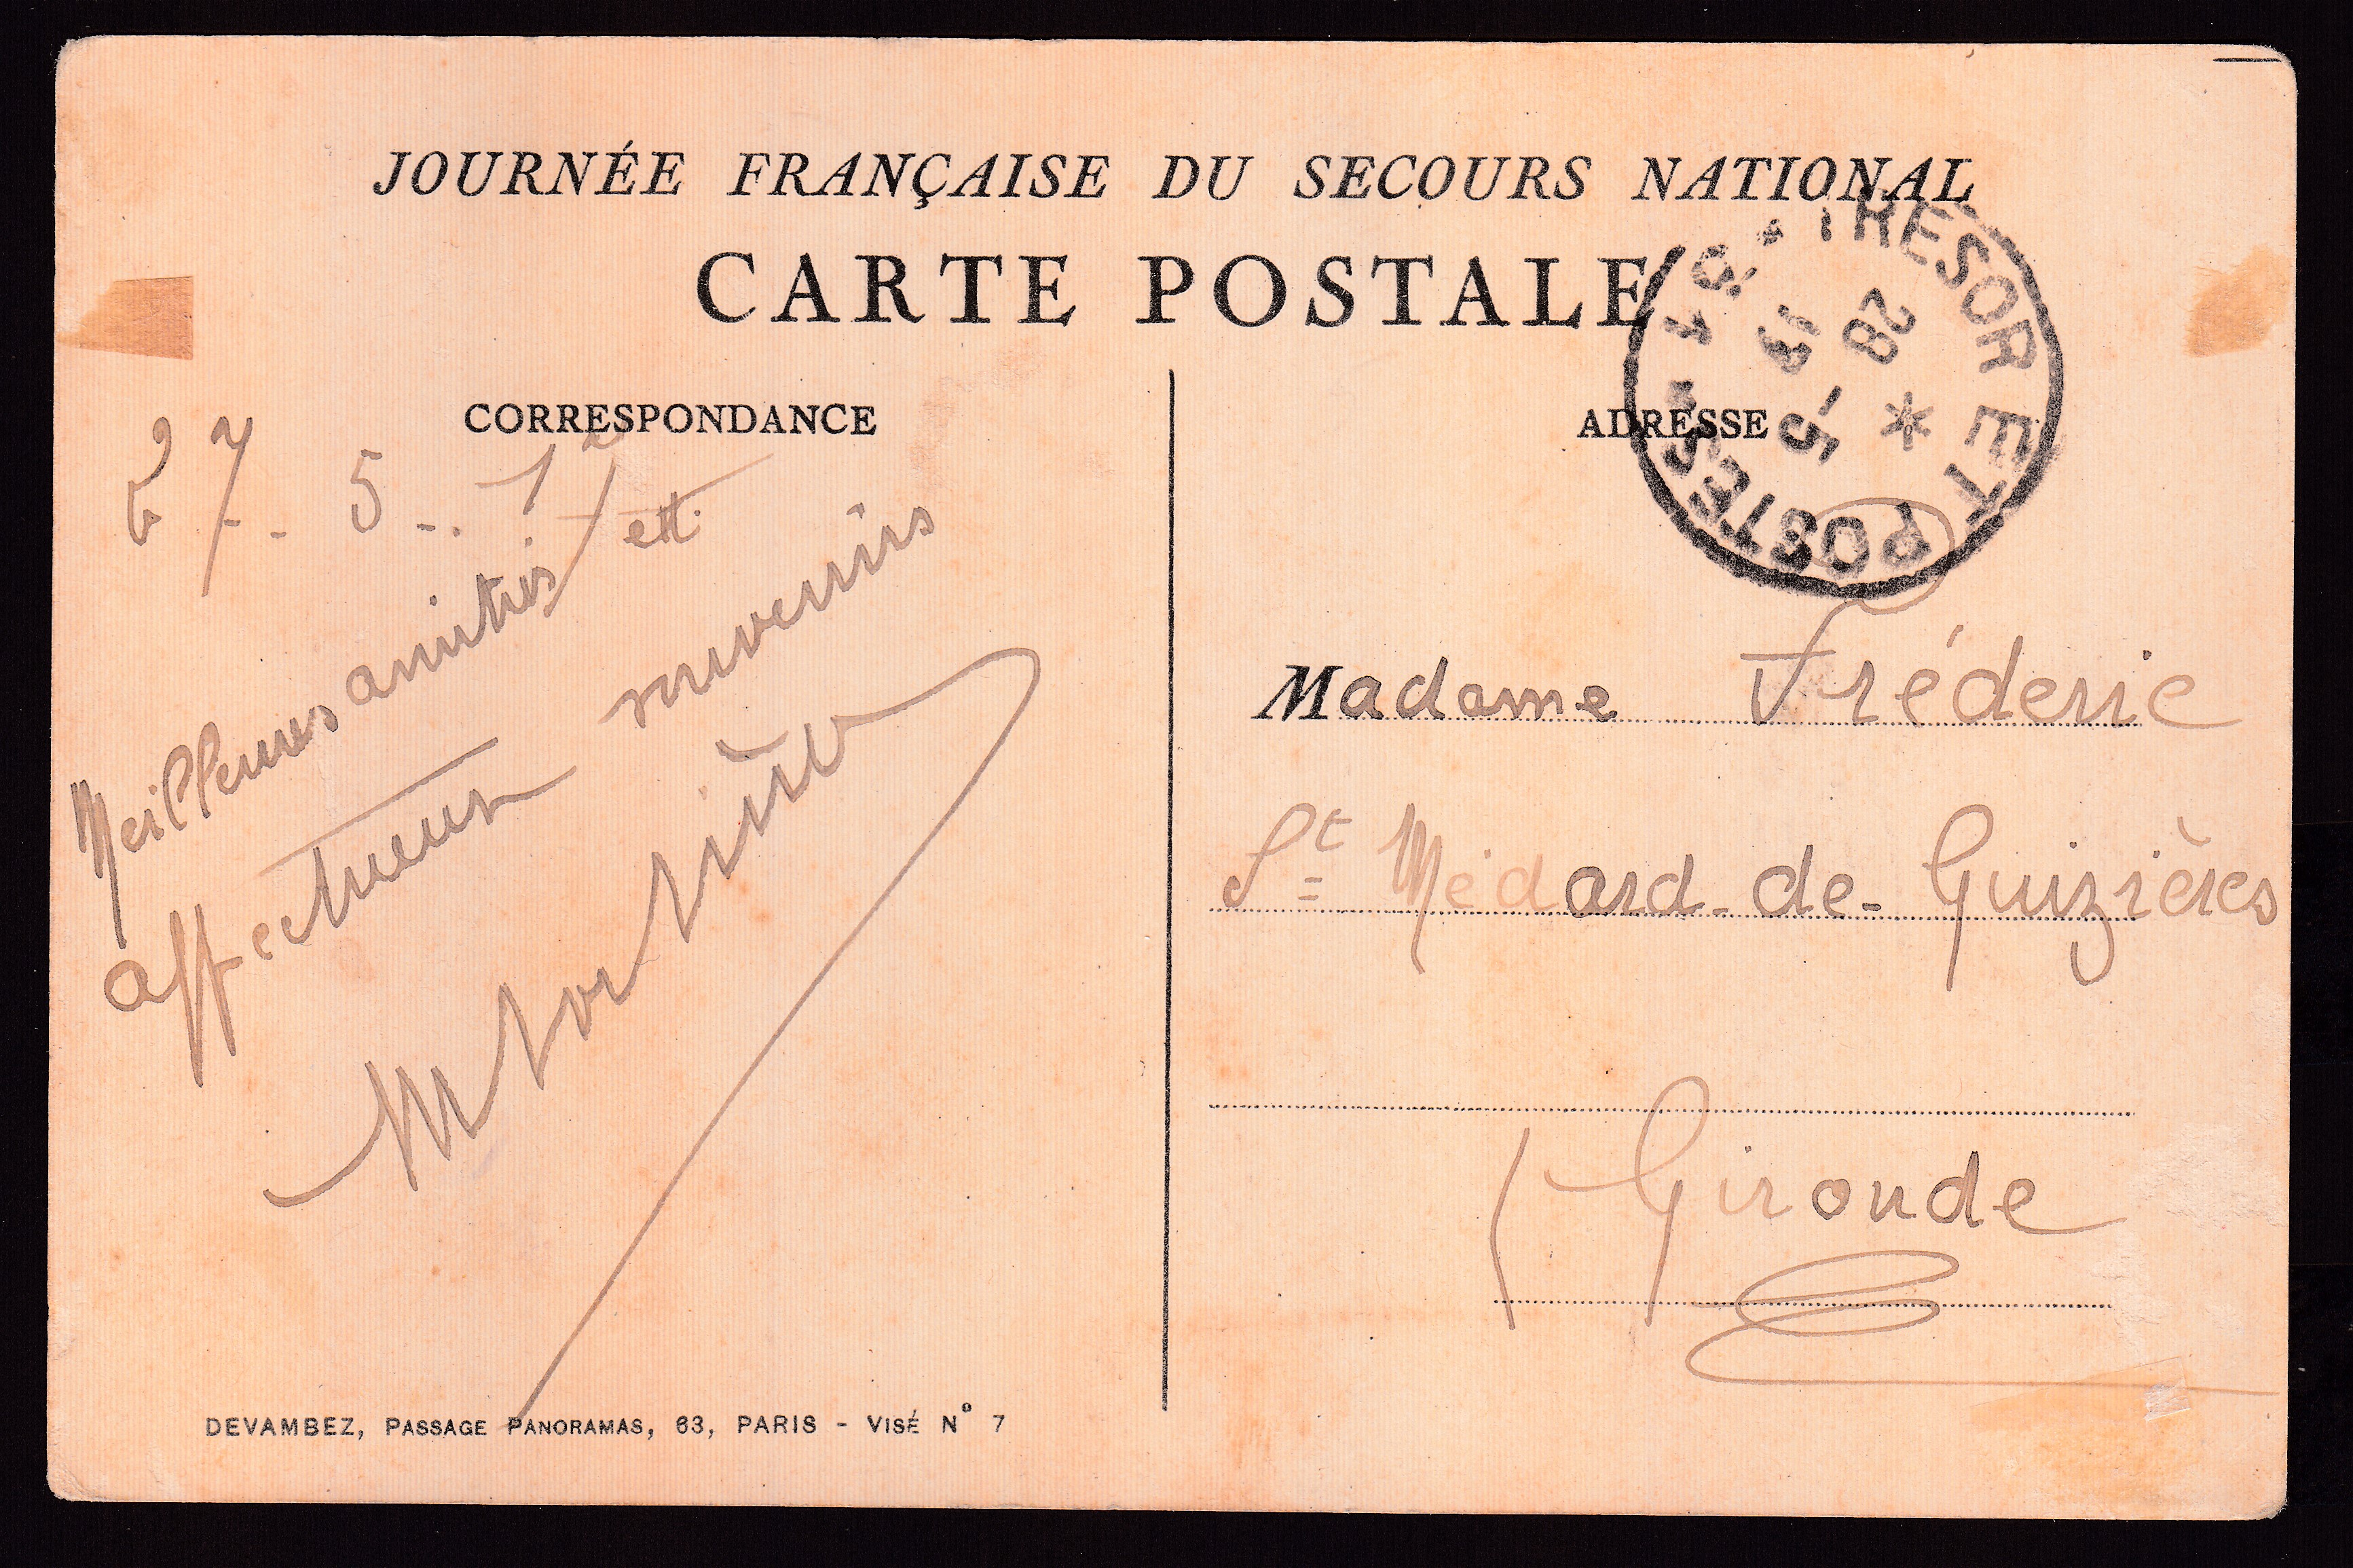 JOURNÉE FRANÇAISE DU SECOURS NATIONAL
CARTE POSTALE
TRESOR ET POSTES
28 - 5
CORRESPONDANCE
27 - 5 - 17
Meilleures amitiés et
affectueux souvenirs
ADRESSE
Madame Fréderic
St Médard-de-Guizières
Gironde
DEVAMBEZ, PASSAGE PANORAMAS, 63, PARIS - VISÉ No 7